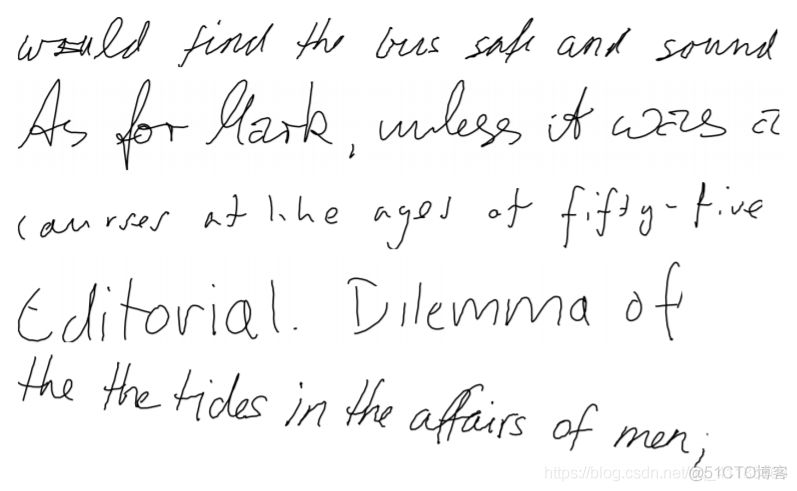 would find the bus safe and sound
As for Mark, unless it was a
courses at the ages of fifty-five
Editorial. Dilemma of
the the tides in the affairs of men;
@51CTO博客